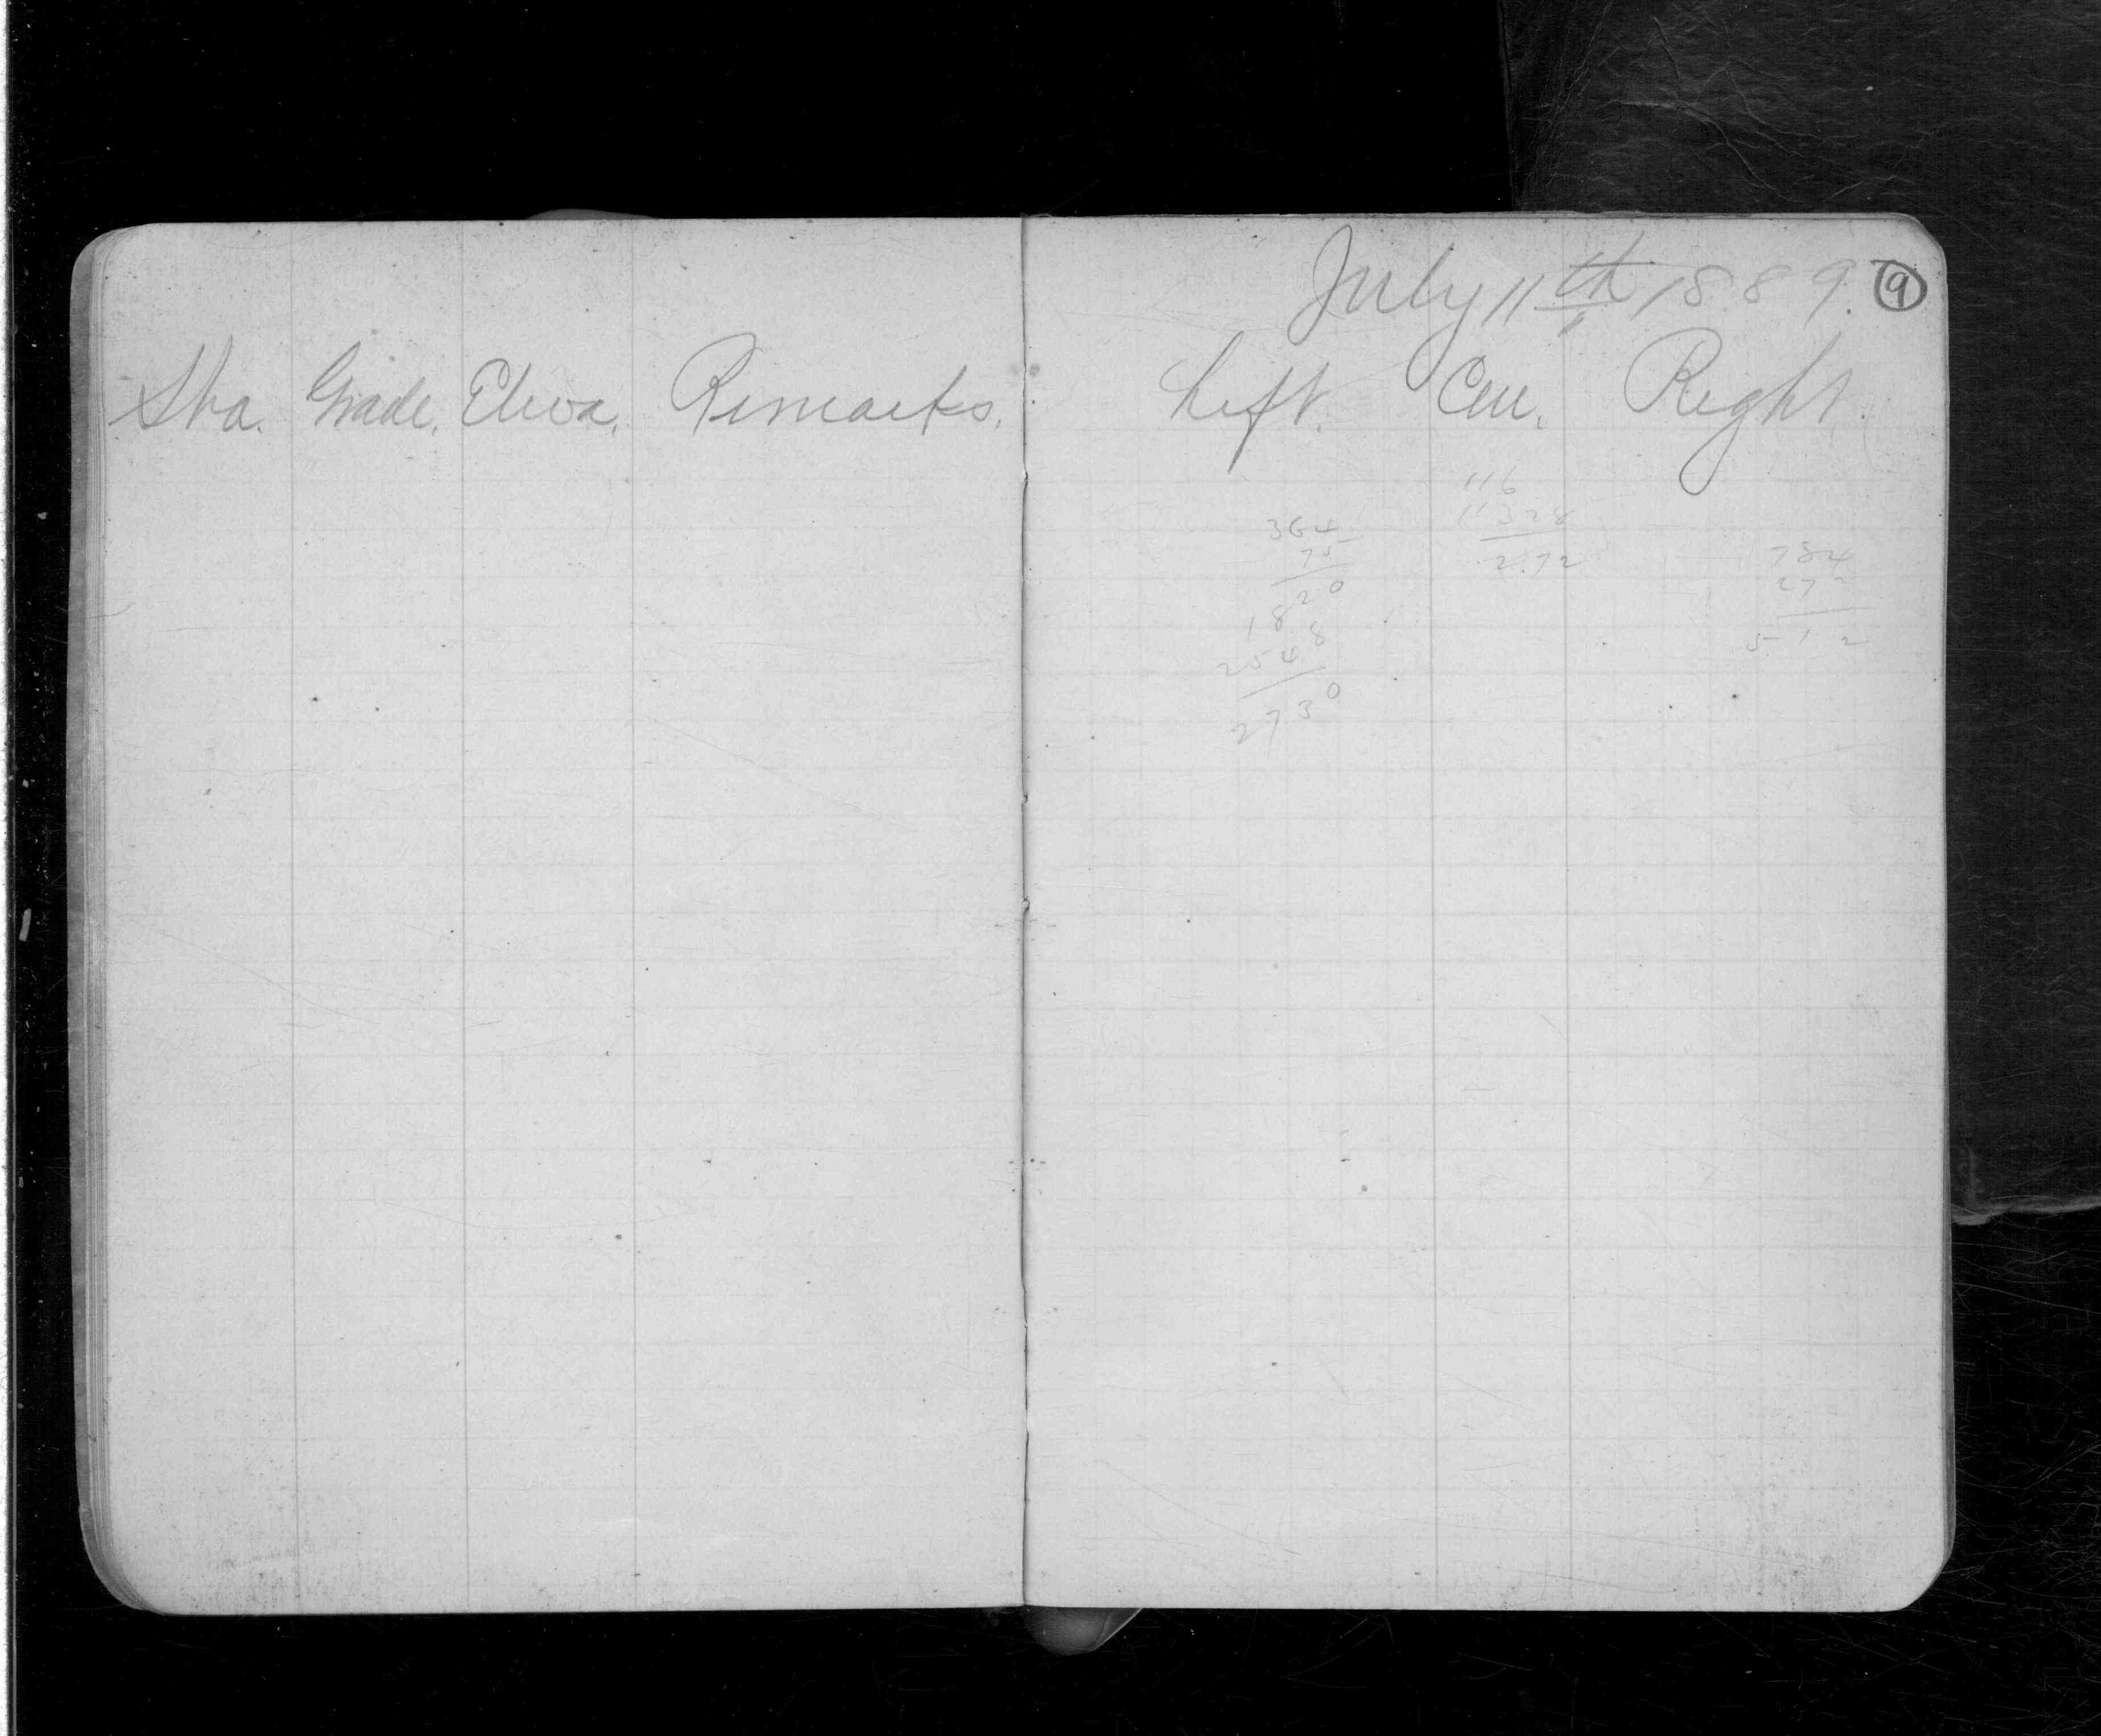 July 11th, 1889. 9
Sta. Grade. Eleva. Remarks.
Left. Cen. Right.
116
11328
2.72
364
75
1820
2548
2730
784
272
512